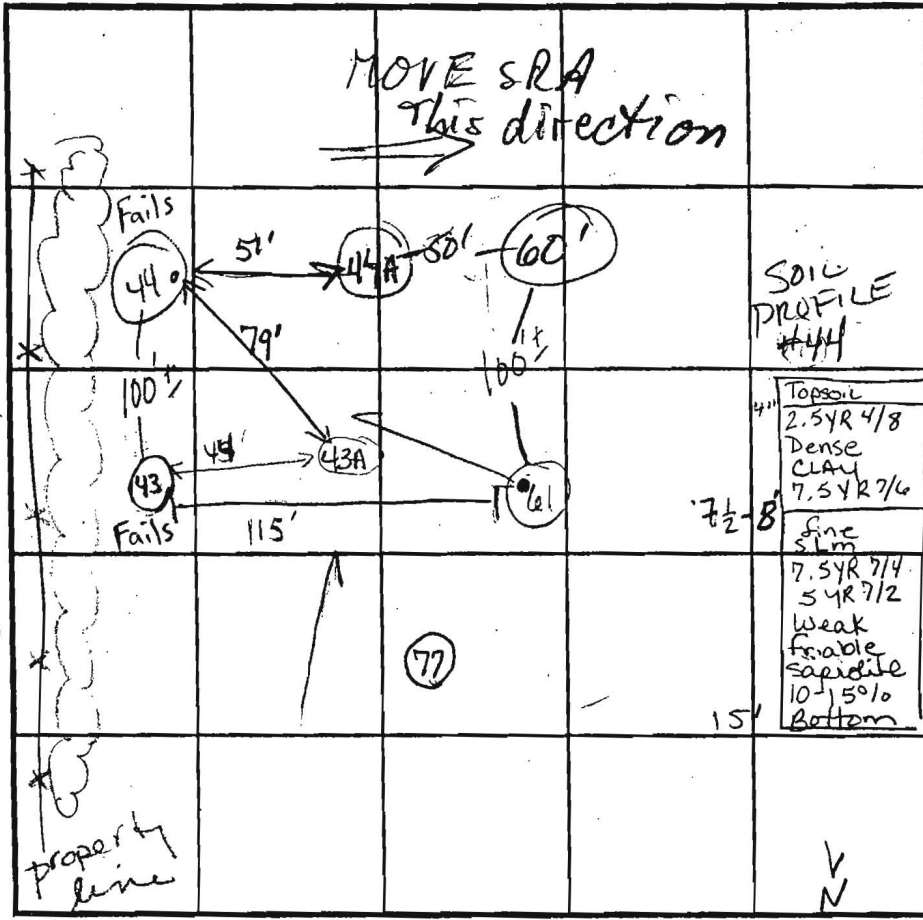 MOVE SRA
This direction
Fails
44
51'
44A
50'
60'
79'
100'±
100'±
43
45'
43A
61
Fails
115'
77
property
line
SOIL
PROFILE
#44
4"
Topsoil
2.5YR 4/8
Dense
CLAY
7.5YR 7/6
7½-8'
fine
SLm
7.5YR 7/4
5YR 7/2
Weak
friable
saprolite
10-15%
15'
Bottom
N